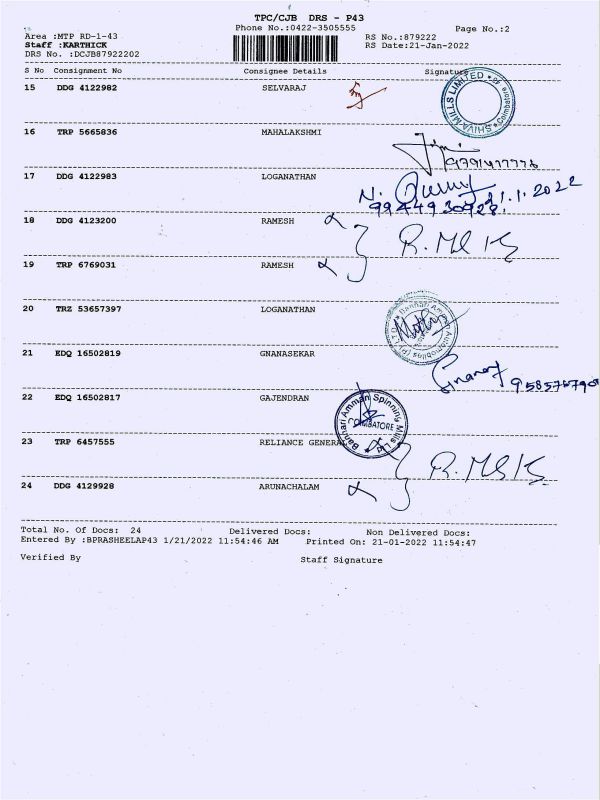 TPC/CJB DRS - P43
Phone No.:0422-3505555
Page No.:2
Area :MTP RD-1-43
RS No.:879222
Staff :KARTHICK
RS Date:21-Jan-2022
DRS No. :DCJB87922202
S No Consignment No Consignee Details Signature
15 DDG 4122982 SELVARAJ
SHIVA MILLS LIMITED
Coimbatore
16 TRP 5665836 MAHALAKSHMI
17 DDG 4122983 LOGANATHAN
21.1.2022
18 DDG 4123200 RAMESH
19 TRP 6769031 RAMESH
20 TRZ 53657397 LOGANATHAN
21 EDQ 16502819 GNANASEKAR
22 EDQ 16502817 GAJENDRAN
Bannari Amman Spinning Mills Ltd
COIMBATORE
23 TRP 6457555 RELIANCE GENERAL
24 DDG 4129928 ARUNACHALAM
Total No. Of Docs: 24 Delivered Docs: Non Delivered Docs:
Entered By :BPRASHEELAP43 1/21/2022 11:54:46 AM Printed On: 21-01-2022 11:54:47
Verified By Staff Signature